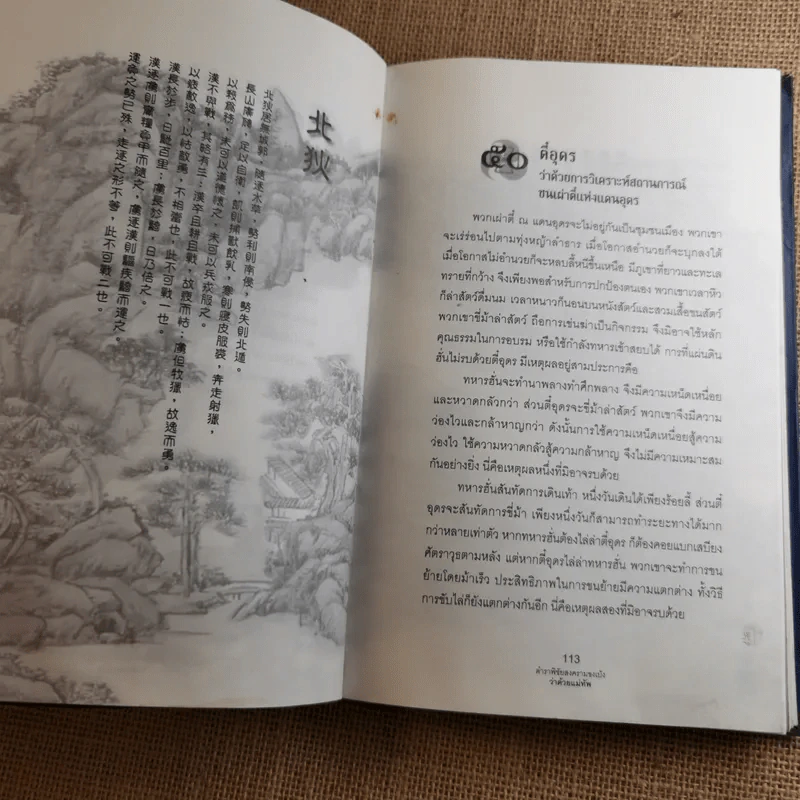 北狄
北狄居無城郭，隨逐水草，勢利則南侵，勢失則北遁。
長山廣磧，足以自衛，飢則捕獸飲乳，寒則寢皮服裘，奔走射獵，
以殺為務，未可以道德懷之，未可以兵戎服之。
漢不與戰，其略有三：漢卒且耕且戰，故疲而怯；虜但牧獵，故逸而勇。
以疲敵逸，以怯敵勇，不相當也，此不可戰一也。
漢長於步，日馳百里；虜長於騎，日乃倍之。
漢逐虜則齎糧負甲而隨之，虜逐漢則驅疾騎而運之。
運負之勢已殊，走逐之形不等，此不可戰二也。
๕๐ ตี๋อุดร
ว่าด้วยการวิเคราะห์สถานการณ์
ชนเผ่าตี๋แห่งแดนอุดร
พวกเผ่าตี๋ ณ แดนอุดรจะไม่อยู่กันเป็นชุมชนเมือง พวกเขา
จะเร่ร่อนไปตามทุ่งหญ้าลำธาร เมื่อโอกาสอำนวยก็จะบุกลงใต้
เมื่อโอกาสไม่อำนวยก็จะหลบลี้หนีขึ้นเหนือ มีภูเขาที่ยาวและทะเล
ทรายที่กว้าง จึงเพียงพอสำหรับการปกป้องตนเอง พวกเขาเวลาหิว
ก็ล่าสัตว์ดื่มนม เวลาหนาวก็นอนบนหนังสัตว์และสวมเสื้อขนสัตว์
พวกเขาขี่ม้าล่าสัตว์ ถือการเข่นฆ่าเป็นกิจกรรม จึงมิอาจใช้หลัก
คุณธรรมในการอบรม หรือใช้กำลังทหารเข้าสยบได้ การที่แผ่นดิน
ฮั่นไม่รบด้วยตี๋อุดร มีเหตุผลอยู่สามประการคือ
ทหารฮั่นจะทำนาพลางทำศึกพลาง จึงมีความเหน็ดเหนื่อย
และหวาดกลัวกว่า ส่วนตี๋อุดรจะขี่ม้าล่าสัตว์ พวกเขาจึงมีความ
ว่องไวและกล้าหาญกว่า ดังนั้นการใช้ความเหน็ดเหนื่อยสู้ความ
ว่องไว ใช้ความหวาดกลัวสู้ความกล้าหาญ จึงไม่มีความเหมาะสม
กันอย่างยิ่ง นี่คือเหตุผลหนึ่งที่มิอาจรบด้วย
ทหารฮั่นสันทัดการเดินเท้า หนึ่งวันเดินได้เพียงร้อยลี้ ส่วนตี๋
อุดรจะสันทัดการขี่ม้า เพียงหนึ่งวันก็สามารถทำระยะทางได้มาก
กว่าหลายเท่าตัว หากทหารฮั่นต้องไล่ล่าตี๋อุดร ก็ต้องคอยแบกเสบียง
ศัตราวุธตามหลัง แต่หากตี๋อุดรไล่ล่าทหารฮั่น พวกเขาจะทำการขน
ย้ายโดยม้าเร็ว ประสิทธิภาพในการขนย้ายมีความแตกต่าง ทั้งวิธี
การขับไล่ก็ยังแตกต่างกันอีก นี่คือเหตุผลสองที่มิอาจรบด้วย
113
ตำราพิชัยสงครามขงเบ้ง
ว่าด้วยแม่ทัพ